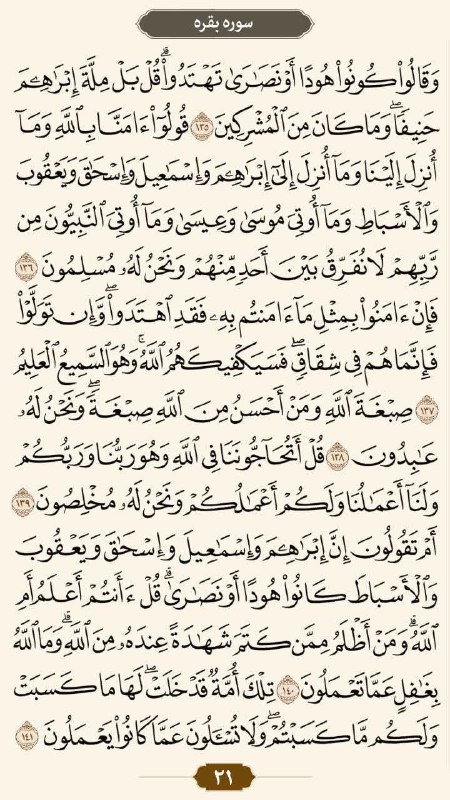 سوره بقره
وَقَالُوا۟ كُونُوا۟ هُودًا أَوْ نَصَـٰرَىٰ تَهْتَدُوا۟ ۗ قُلْ بَلْ مِلَّةَ إِبْرَٰهِـۧمَ
حَنِيفًا ۖ وَمَا كَانَ مِنَ ٱلْمُشْرِكِينَ ١٣٥ قُولُوٓا۟ ءَامَنَّا بِٱللَّهِ وَمَآ
أُنزِلَ إِلَيْنَا وَمَآ أُنزِلَ إِلَىٰٓ إِبْرَٰهِـۧمَ وَإِسْمَـٰعِيلَ وَإِسْحَـٰقَ وَيَعْقُوبَ
وَٱلْأَسْبَاطِ وَمَآ أُوتِىَ مُوسَىٰ وَعِيسَىٰ وَمَآ أُوتِىَ ٱلنَّبِيُّونَ مِن
رَّبِّهِمْ لَا نُفَرِّقُ بَيْنَ أَحَدٍ مِّنْهُمْ وَنَحْنُ لَهُۥ مُسْلِمُونَ ١٣٦
فَإِنْ ءَامَنُوا۟ بِمِثْلِ مَآ ءَامَنتُم بِهِۦ فَقَدِ ٱهْتَدَوا۟ ۖ وَّإِن تَوَلَّوْا۟
فَإِنَّمَا هُمْ فِى شِقَاقٍ ۖ فَسَيَكْفِيكَهُمُ ٱللَّهُ ۚ وَهُوَ ٱلسَّمِيعُ ٱلْعَلِيمُ
١٣٧ صِبْغَةَ ٱللَّهِ ۖ وَمَنْ أَحْسَنُ مِنَ ٱللَّهِ صِبْغَةً ۖ وَنَحْنُ لَهُۥ
عَـٰبِدُونَ ١٣٨ قُلْ أَتُحَآجُّونَنَا فِى ٱللَّهِ وَهُوَ رَبُّنَا وَرَبُّكُمْ
وَلَنَآ أَعْمَـٰلُنَا وَلَكُمْ أَعْمَـٰلُكُمْ وَنَحْنُ لَهُۥ مُخْلِصُونَ ١٣٩
أَمْ تَقُولُونَ إِنَّ إِبْرَٰهِـۧمَ وَإِسْمَـٰعِيلَ وَإِسْحَـٰقَ وَيَعْقُوبَ
وَٱلْأَسْبَاطَ كَانُوا۟ هُودًا أَوْ نَصَـٰرَىٰ ۗ قُلْ ءَأَنتُمْ أَعْلَمُ أَمِ
ٱللَّهُ ۗ وَمَنْ أَظْلَمُ مِمَّن كَتَمَ شَهَـٰدَةً عِندَهُۥ مِنَ ٱللَّهِ ۗ وَمَا ٱللَّهُ
بِغَـٰفِلٍ عَمَّا تَعْمَلُونَ ١٤٠ تِلْكَ أُمَّةٌ قَدْ خَلَتْ ۖ لَهَا مَا كَسَبَتْ
وَلَكُم مَّا كَسَبْتُمْ ۖ وَلَا تُسْـَٔلُونَ عَمَّا كَانُوا۟ يَعْمَلُونَ ١٤١
٢١